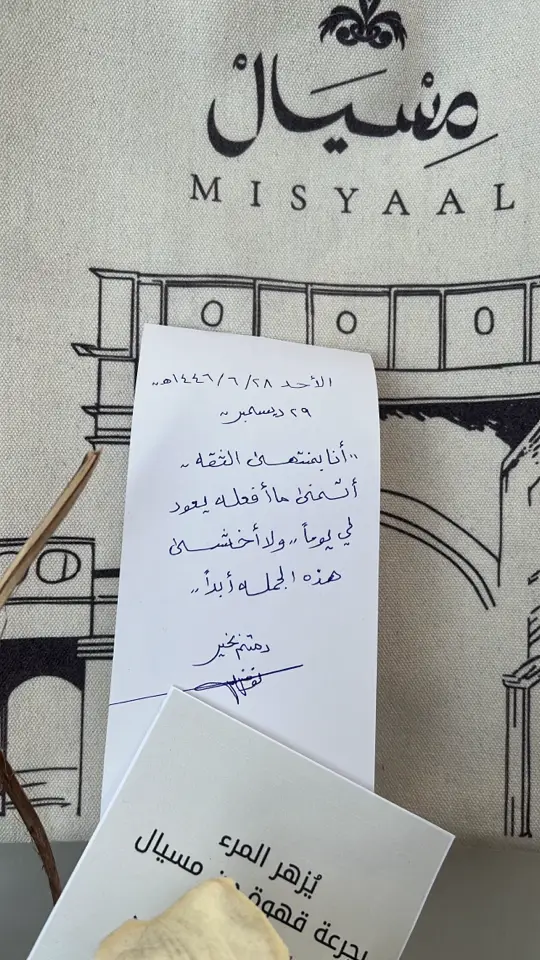 مسيال
MISYAAL
الأحد ٢٨/٦/١٤٤٦هـ
٢٩ ديسمبر
،،أنا بمنتهى الثقه،،
أتمنى ما أفعله يعود
لي يوماً،، ولا أخشى
هذه الجمله أبداً،،
دمتم بخير
يُزهر المرء
بجرعة قهوة من مسيال